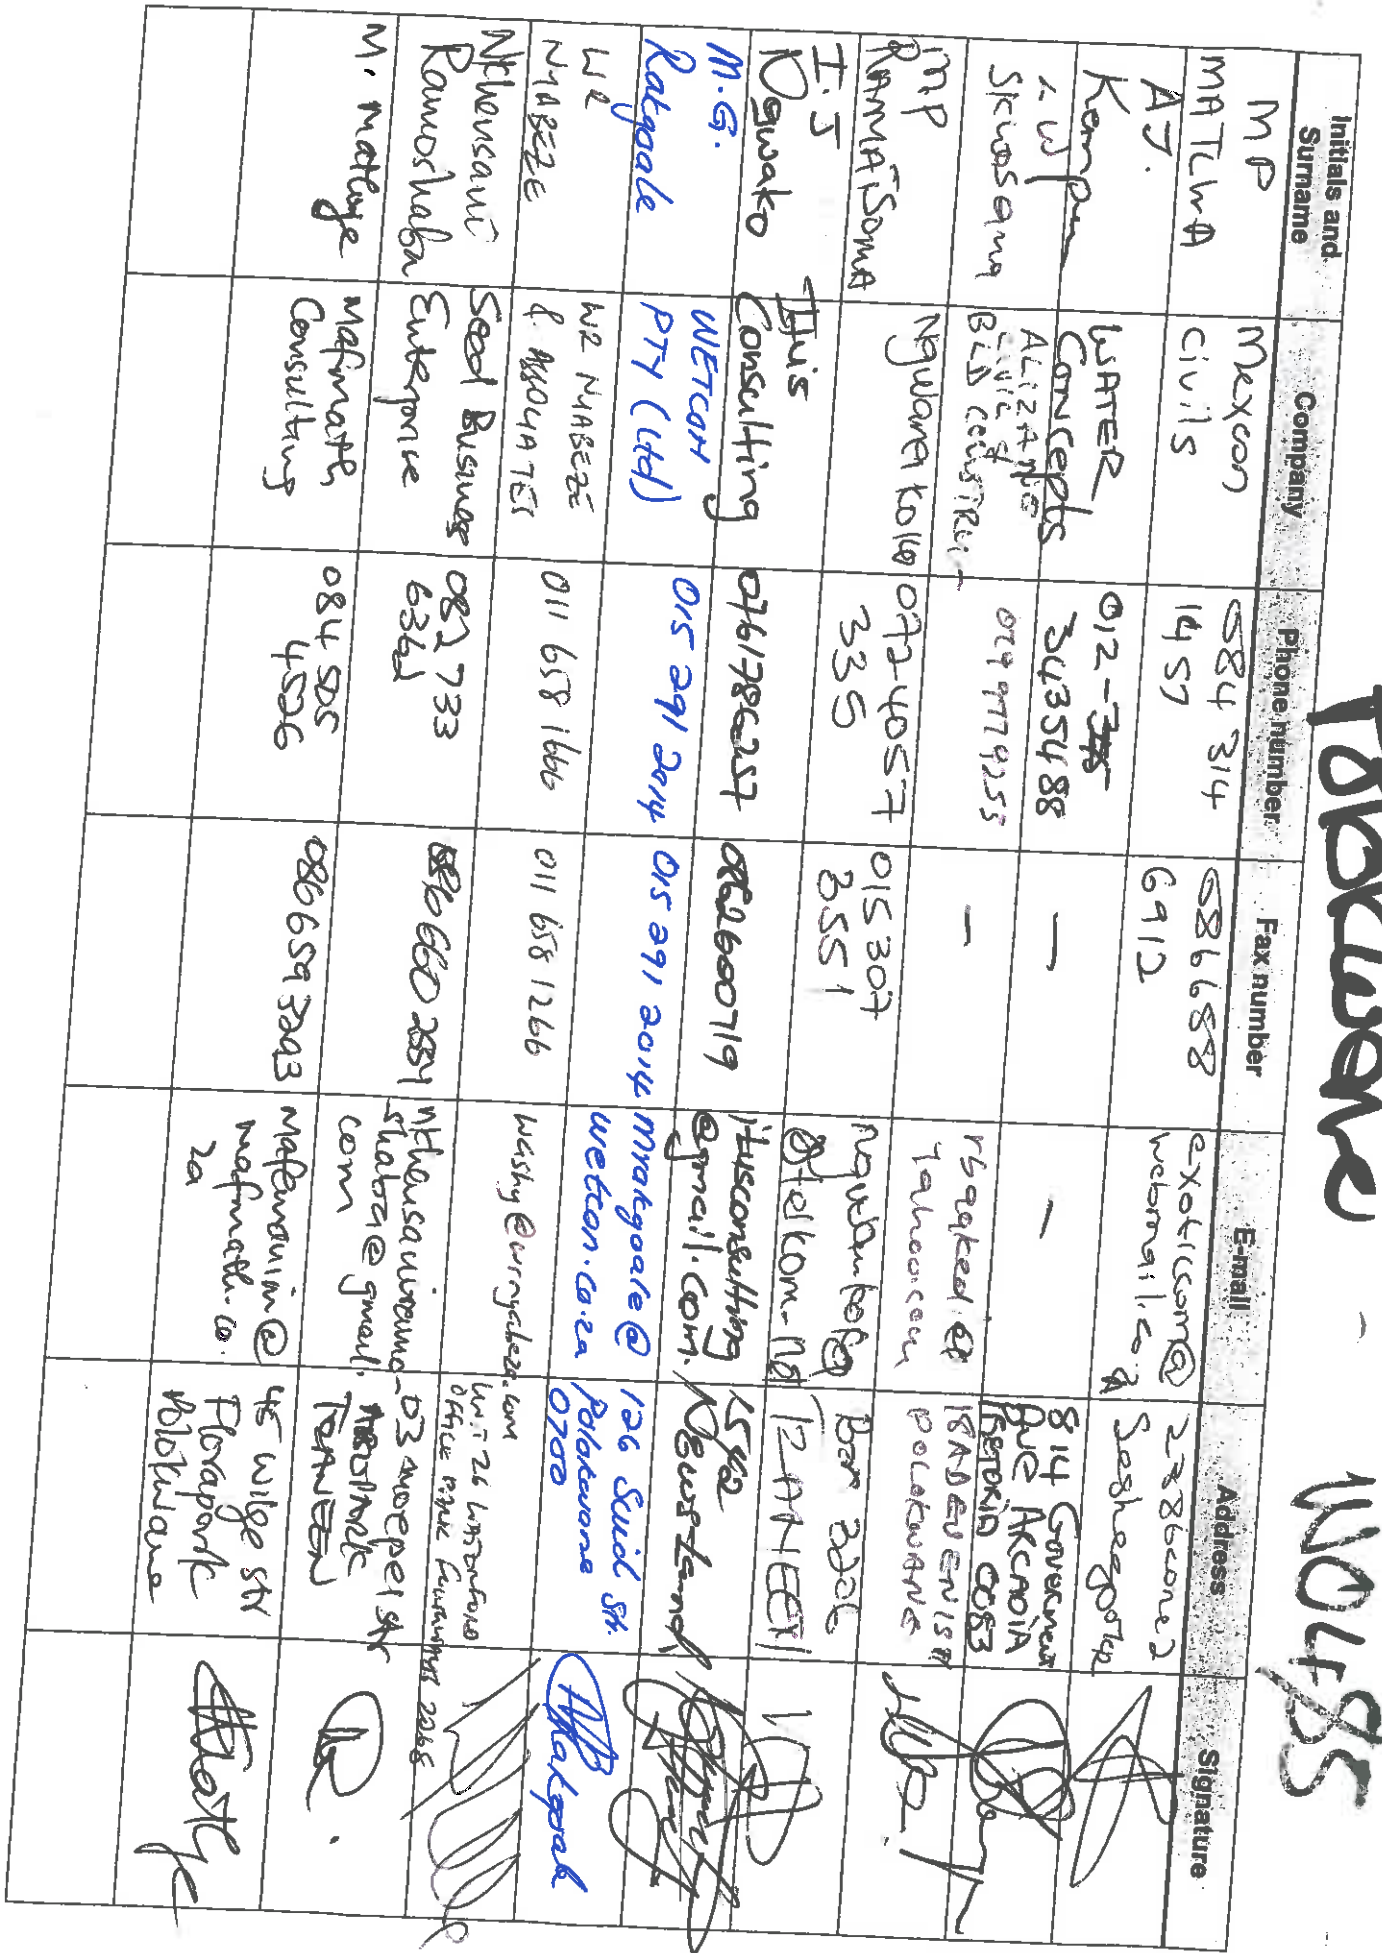 Polokwane - W0485
Initials and Surname Company Phone number Fax number E-mail Address Signature
MP
MATLWA
Mexcon
Civils
084 314
1457
086 688
6912
exoticcom@
webmail.co.za
2386 zone 2
Seshego 0742
A J.
WATER
Concepts
012-
34354 88
—
—
814 Goverment
Ave ARCADIA
PRETORIA 0083
ALIZA
CIVIL &
BLD
—
yahoo.com
POLOKWANE
MP
RAMAÏSOMA
072 4057
335
015 307
3551
Box
TZANEEN
I.J
Ngwako
ITuis
Consulting
0761786257
0862600719
ituisconsulting
@gmail.com.
1542
Newstands
M.G.
Rakgoale
WETCON
PTY (Ltd)
015 291 2014
015 291 2014
mrakgoale@
wetcon.co.za
126 Suid Str.
Polokwane
0700
WR
NYABEZE
WR NYABEZE
& ASSOCIATES
011 658 1666
011 658 1266
washy@wrnyabeze.com
UNIT 26 WATERFORD
OFFICE PARK FOURWAYS 2068
Nkhensani
Ramoshaba
Seed Business
Enterprise
082 733
636
086 660 2554
nkhensanirama
shaba@gmail.
com
03 moepel str
TZANEEN
M. Mathye
Mafimath
Consulting
084 505
4526
0866593293
mafemanim@
mafimath.co.
za
45 Wilge str
Florapark
Polokwane